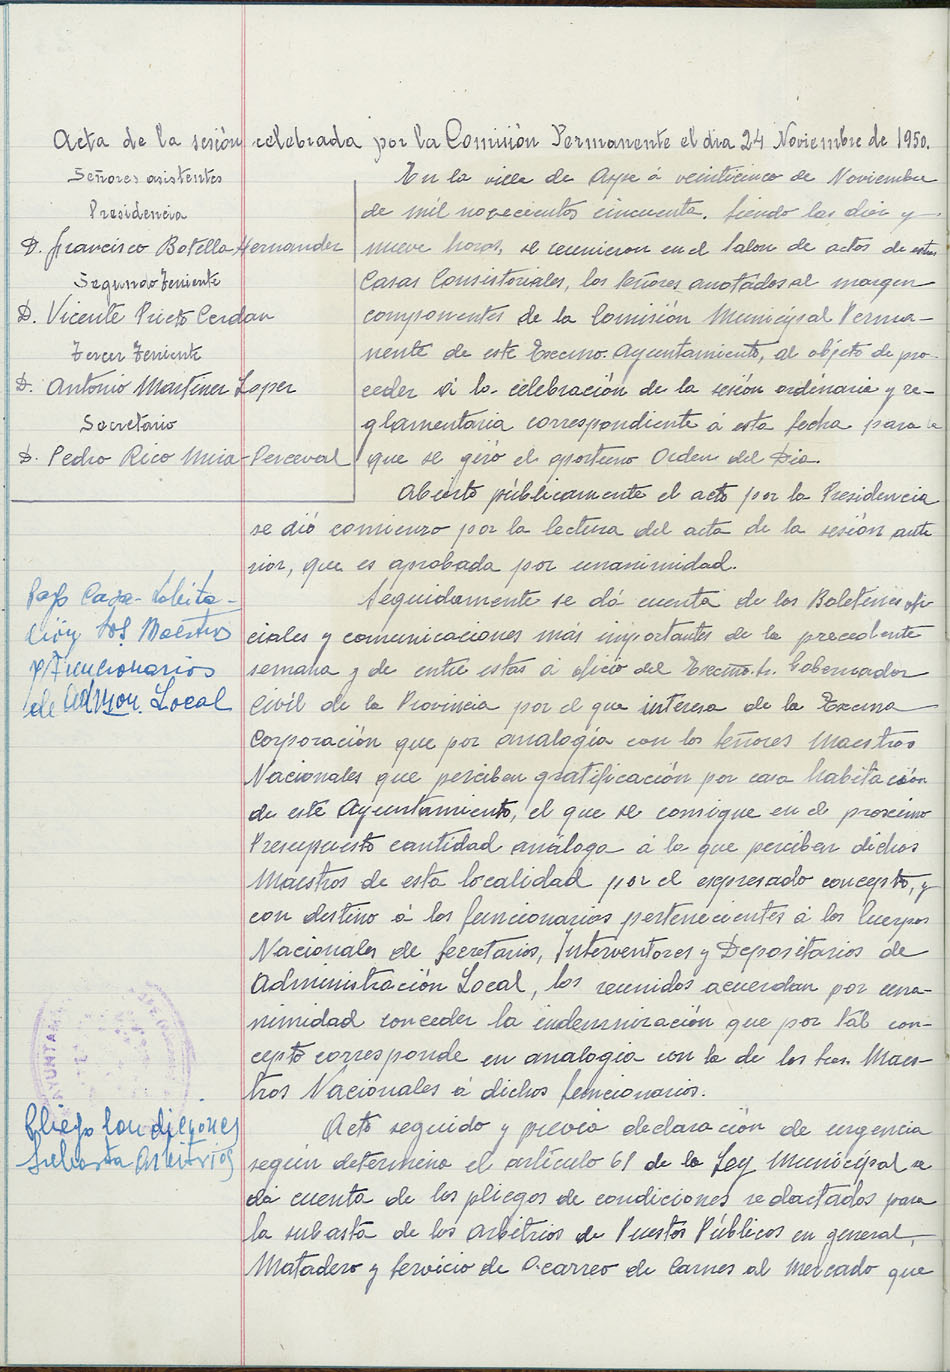 Acta de la sesión celebrada por la Comisión Permanente el dia 24 Noviembre de 1950.
Señores asistentes
Presidencia
D. Francisco Botella Hernandez
Segundo Teniente
D. Vicente Prieto Cerdan
Tercer Teniente
D. Antonio Martinez Lopez
Secretario
D. Pedro Rico Mira-Perceval
En la villa de Aspe á veinticinco de Noviembre
de mil novecientos cincuenta. Siendo las diez y
nueve horas, se reunieron en el Salon de actos de estas
Casas Consistoriales, los señores anotados al margen
componentes de la Comisión Municipal Perma-
nente de este Excmo. Ayuntamiento, al objeto de pro-
ceder á la celebración de la sesión ordinaria y re-
glamentaria correspondiente á esta fecha para la
que se giró el oportuno Orden del Dia.
Abierto públicamente el acto por la Presidencia
se dió comienzo por la lectura del acta de la sesión ante
rior, que es aprobada por unanimidad.
Pago Casa-habita-
ción Srs Maestros
y Funcionarios
de Admon. Local
Seguidamente se dá cuenta de los Boletines ofi-
ciales y comunicaciones más importantes de la precedente
semana y de entre estas á oficio del Excmo. Sr. Gobernador
Civil de la Provincia por el que interesa de la Excma
Corporación que por analogía con los señores Maestros
Nacionales que perciben gratificación por casa habitación
de este Ayuntamiento, el que se consigne en el proximo
Presupuesto cantidad análoga á la que perciben dichos
Maestros de esta localidad por el expresado concepto, y
con destino á los funcionarios pertenecientes á los Cuerpos
Nacionales de Secretarios, Interventores y Depositarios de
Administración Local, los reunidos acuerdan por una-
nimidad conceder la indemnización que por tál con-
cepto corresponde en analogia con la de los Sres. Maes-
tros Nacionales á dichos funcionarios.
AYUNTAM
Pliego Condiciones
Subasta Arbitrios
Acto seguido y previa declaración de urgencia
según determina el artículo 61 de la Ley Municipal se
da cuenta de los pliegos de condiciones redactados para
la subasta de los Arbitrios de Puestos Públicos en general,
Matadero y Servicio de Acarreo de Carnes al Mercado que